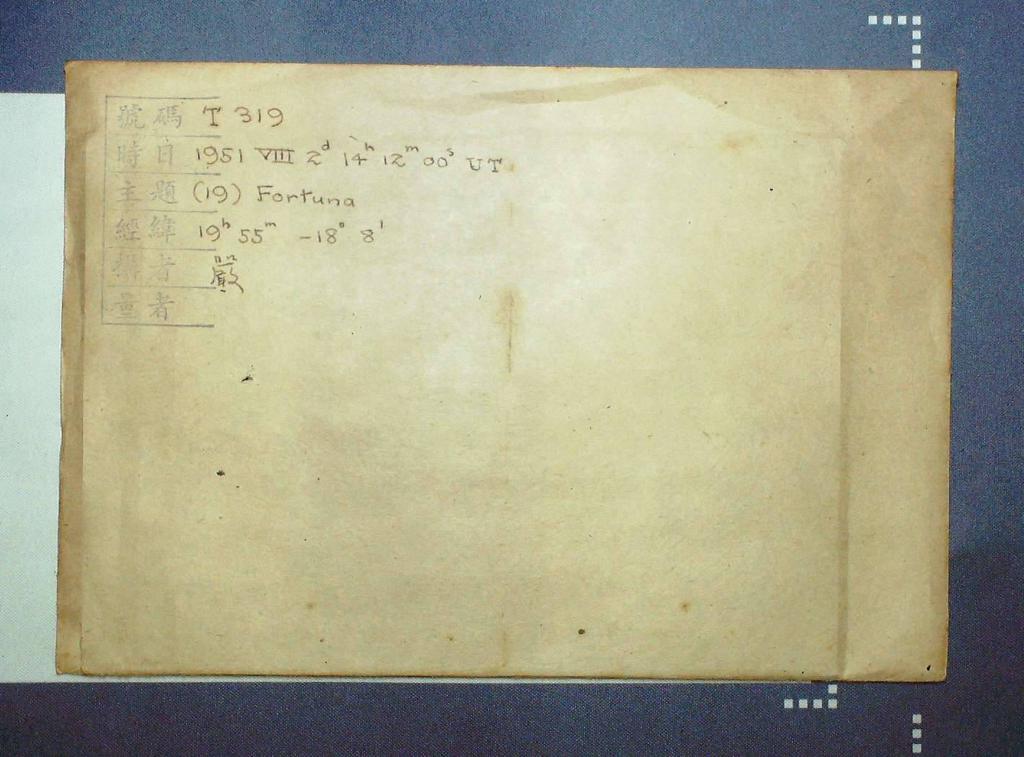 號碼 T 319
時日 1951 VIII 2ᵈ 14ʰ 12ᵐ 00ˢ UT
主題 (19) Fortuna
經緯 19ʰ 55ᵐ -18° 8'
攝者 嚴
量者